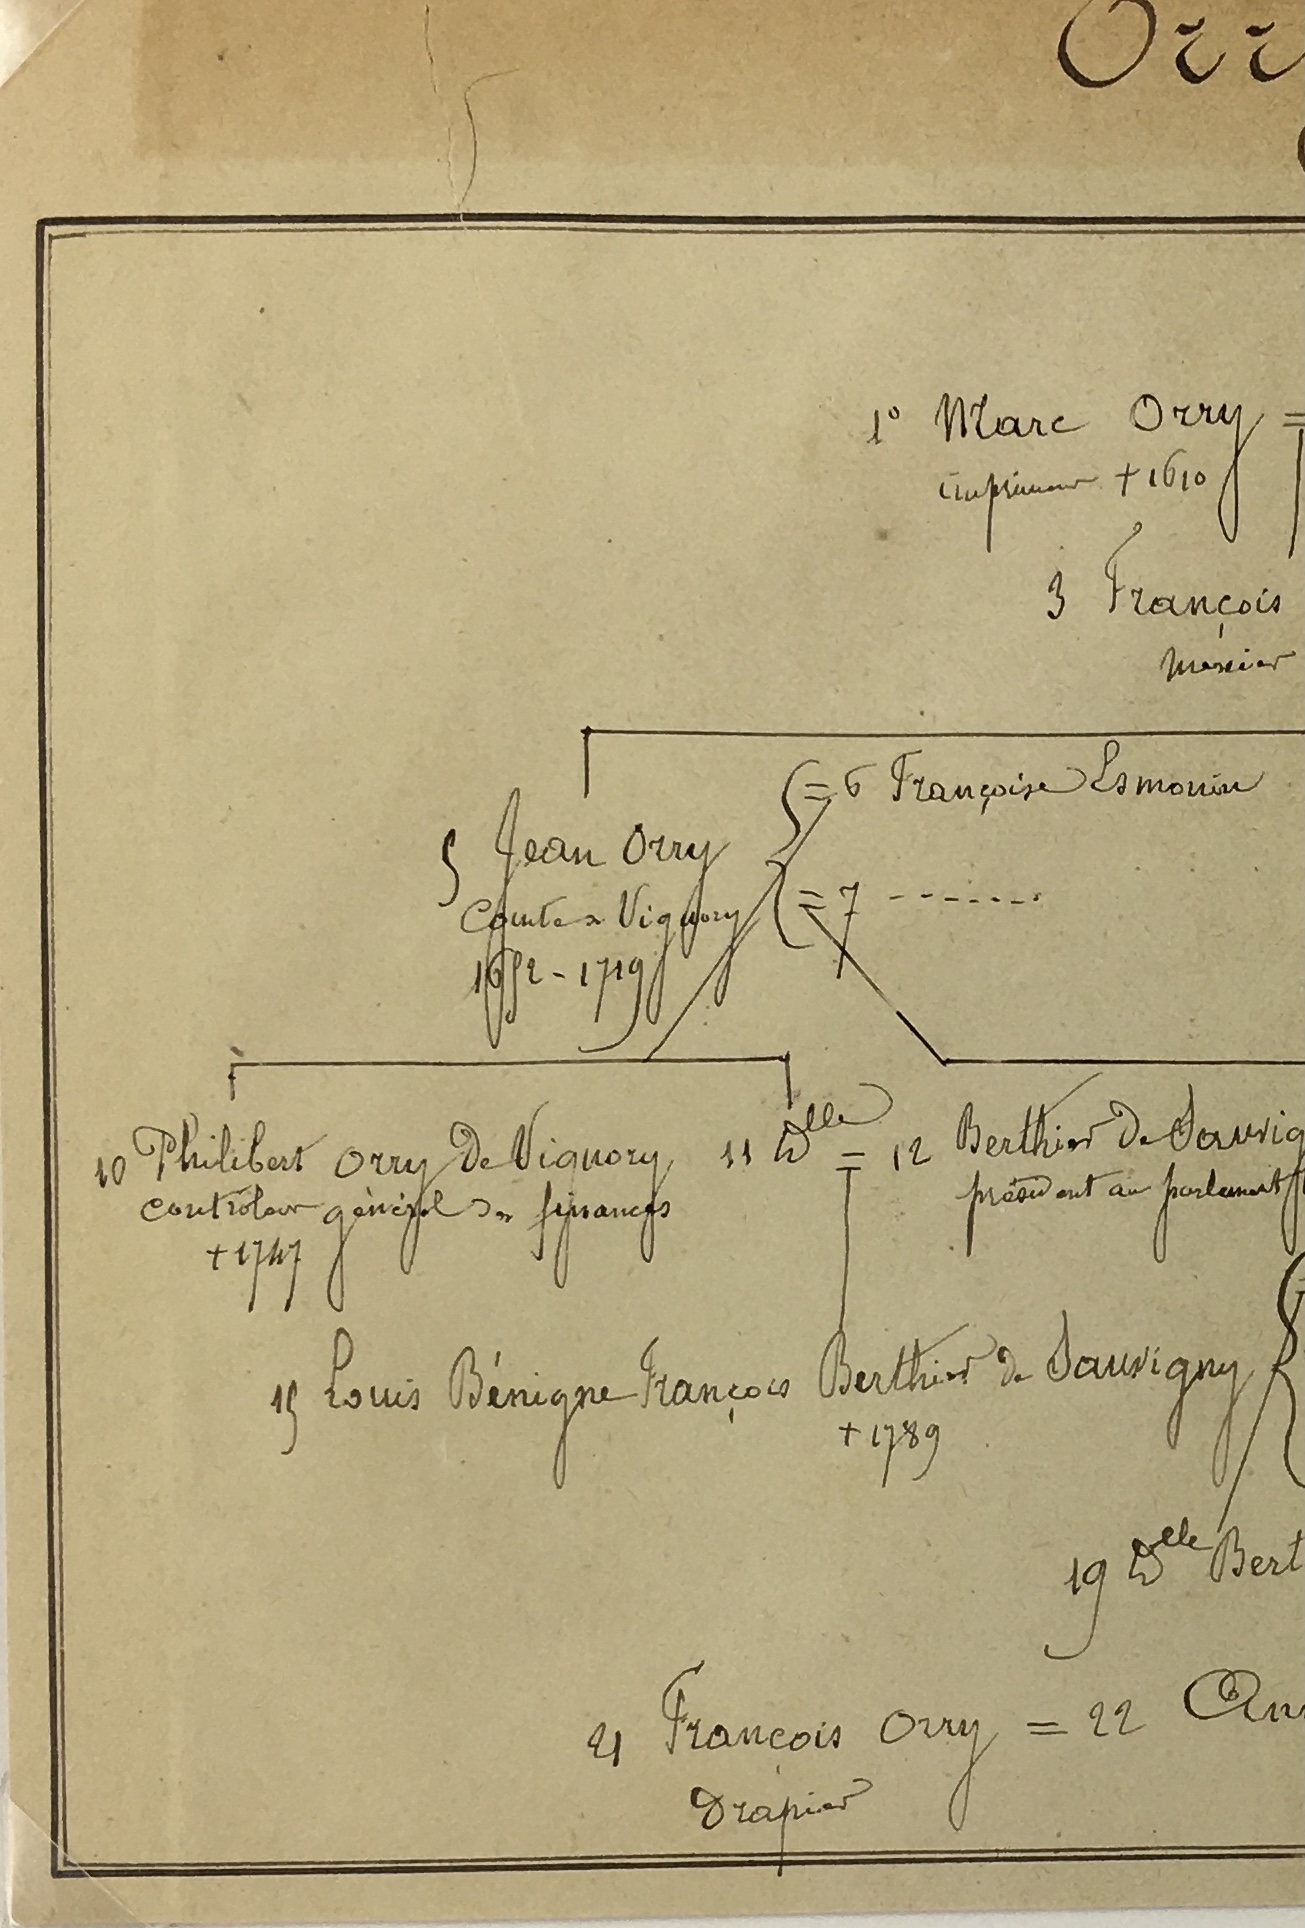 Ori
1° Marc Orry =
imprimeur + 1610
3 François
mercier
= 6 Françoise Esmonin
5 Jean Orry
= 7 - - - - - - -
Comte de Vignory
1652 - 1719
10 Philibert Orry De Vignory 11 Dlle = 12 Berthier De Sauvig
controleur général des finances président au parlement
+ 1747
15 Louis Bénigne François Berthier de Sauvigny
+ 1789
19 Dlle Bert
21 François Orry = 22 Ann
Drapier